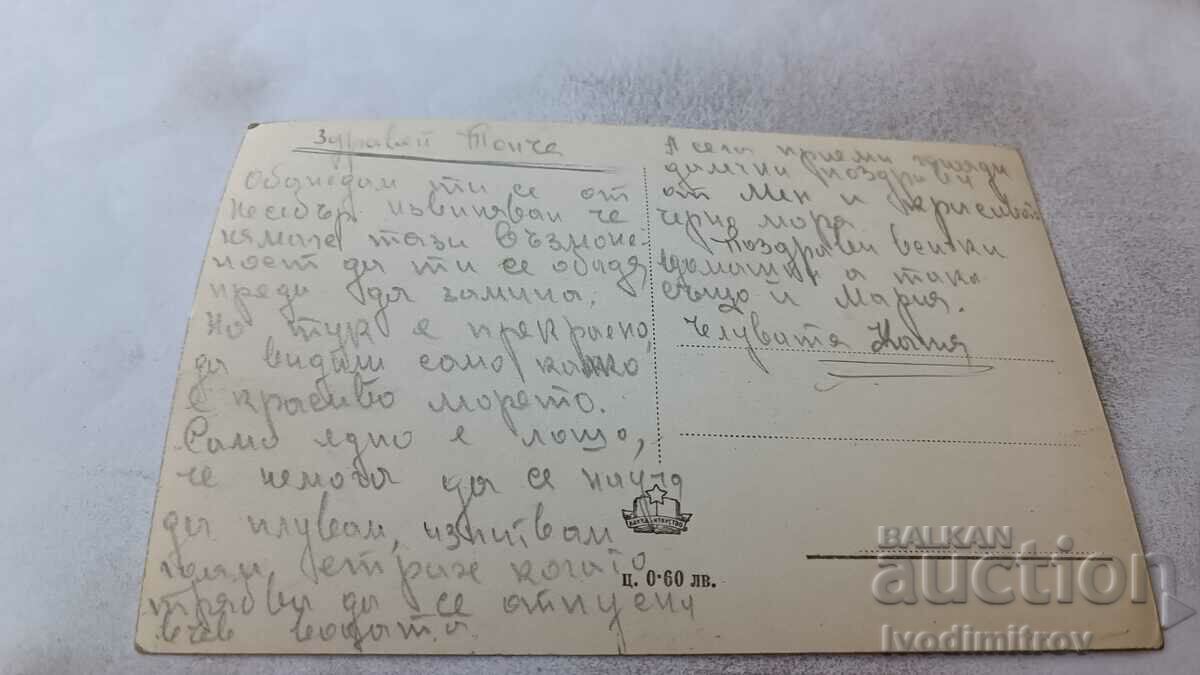 Здравей Тонче
Обаждам ти се от
Несебър извинявай че
нямаше тази възмож-
ност да ти се обадя
преди да замина.
Но тук е прекрасно,
да видиш само колко
е красиво морето.
Само едно е лошо,
че немога да се науча
да плувам, изпитвам
голям страх когато
трябва да се отпусна
във водата.
А сега приеми хиляди
поздрави
от мен и красивото
черно море
Поздрави всички
домашни а така
също и Мария.
Челувата Катя
НАУКА ИЗКУСТВО
Ц. 0·60 лв.
BALKAN
auction
Ivodimitrov